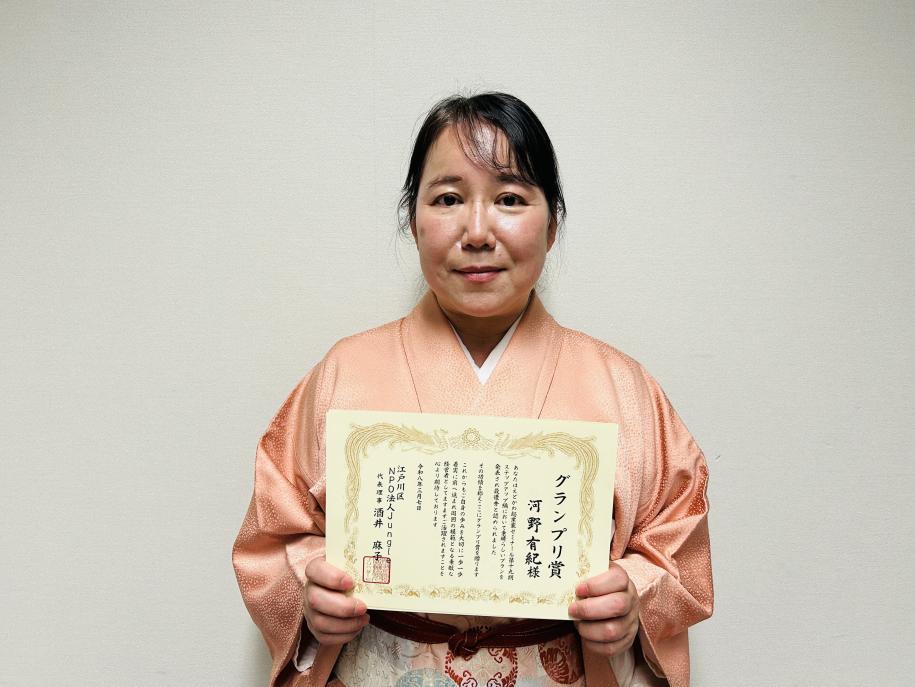 グランプリ賞
河野有紀様
あなたはえどがわ起業家セミナール第十九期
ステップアップ編において素晴らしいプランを
発表され最優秀と認められました
その功績を称えここにグランプリ賞を贈ります
これからもご自身の歩みを大切に一歩一歩
着実に前へ進まれ周囲の模範となる素敵な
経営者としてますますご活躍されますことを
心より期待しております
令和八年三月七日
江戸川区
NPO法人Jungle
代表理事 酒井 麻子